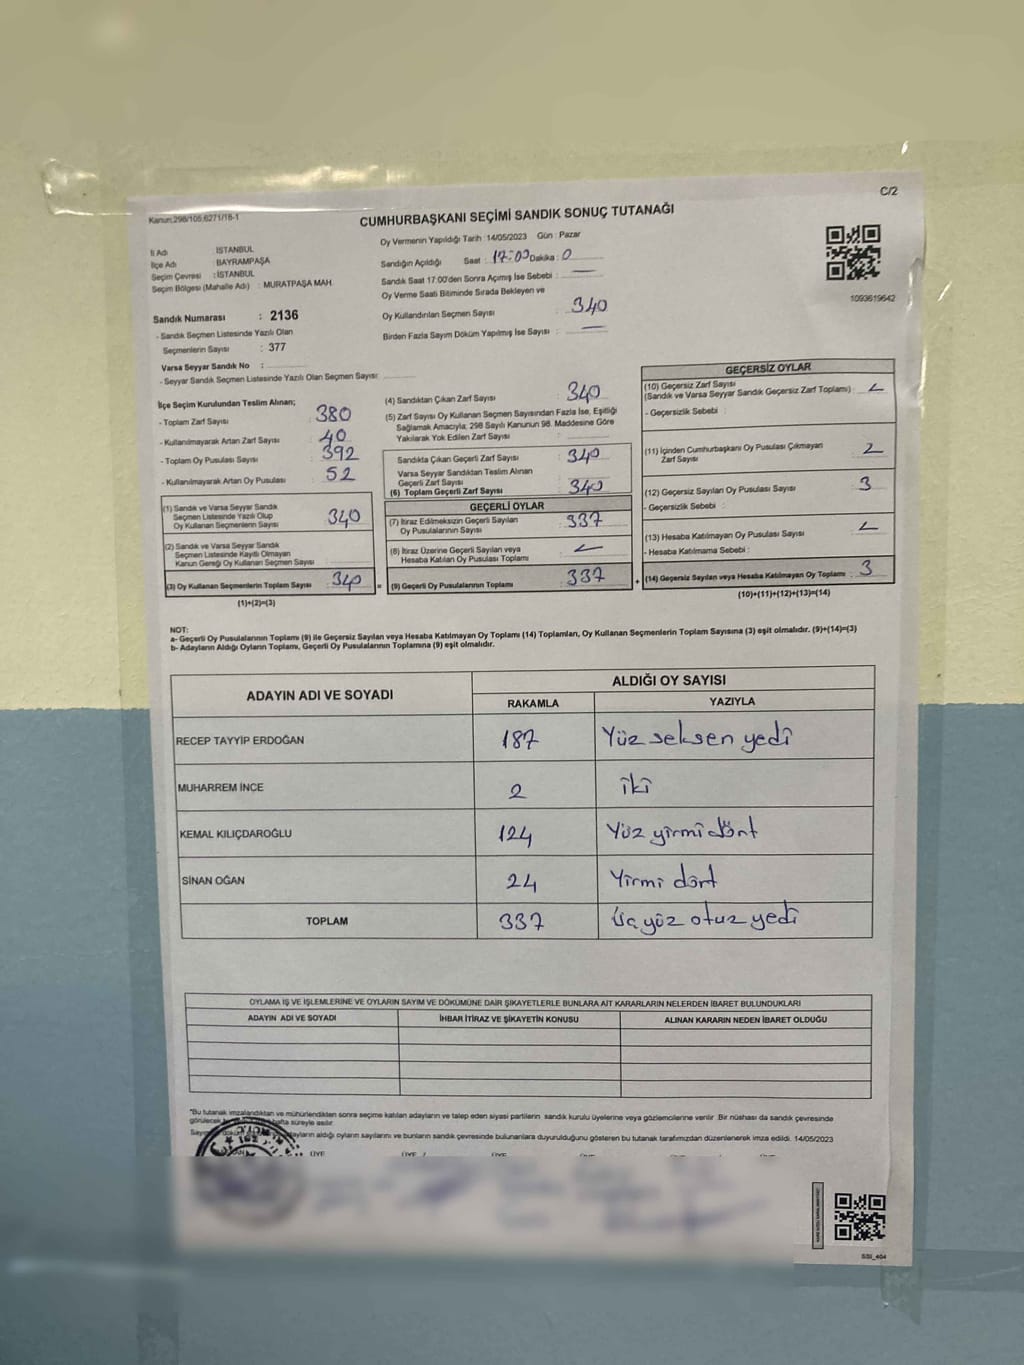 C/2
Kanun:298/105,6271/18-1
CUMHURBAŞKANI SEÇİMİ SANDIK SONUÇ TUTANAĞI
İl Adı : İSTANBUL
İlçe Adı : BAYRAMPAŞA
Seçim Çevresi : İSTANBUL
Seçim Bölgesi (Mahalle Adı) : MURATPAŞA MAH.
Sandık Numarası : 2136
- Sandık Seçmen Listesinde Yazılı Olan
Seçmenlerin Sayısı : 377
Varsa Seyyar Sandık No :
- Seyyar Sandık Seçmen Listesinde Yazılı Olan Seçmen Sayısı:
Oy Vermenin Yapıldığı Tarih :14/05/2023 Gün : Pazar
Sandığın Açıldığı Saat : 17:00 Dakika : 0
Sandık Saat 17:00'den Sonra Açımış İse Sebebi : —
Oy Verme Saati Bitiminde Sırada Bekleyen ve
Oy Kullandırılan Seçmen Sayısı : 340
Birden Fazla Sayım Döküm Yapılmış İse Sayısı : —
1093619642
İlçe Seçim Kurulundan Teslim Alınan;
- Toplam Zarf Sayısı : 380
- Kullanılmayarak Artan Zarf Sayısı : 40
- Toplam Oy Pusulası Sayısı : 392
- Kullanılmayarak Artan Oy Pusulası : 52
(1) Sandık ve Varsa Seyyar Sandık
Seçmen Listesinde Yazılı Olup
Oy Kullanan Seçmenlerin Sayısı : 340
(2) Sandık ve Varsa Seyyar Sandık
Seçmen Listesinde Kayıtlı Olmayan
Kanun Gereği Oy Kullanan Seçmen Sayısı :
(3) Oy Kullanan Seçmenlerin Toplam Sayısı : 340
(1)+(2)=(3)
(4) Sandıktan Çıkan Zarf Sayısı : 340
(5) Zarf Sayısı Oy Kullanan Seçmen Sayısından Fazla İse, Eşitliği
Sağlamak Amacıyla; 298 Sayılı Kanunun 98. Maddesine Göre
Yakılarak Yok Edilen Zarf Sayısı :
Sandıkta Çıkan Geçerli Zarf Sayısı : 340
Varsa Seyyar Sandıktan Teslim Alınan
Geçerli Zarf Sayısı
(6) Toplam Geçerli Zarf Sayısı : 340
GEÇERLİ OYLAR
(7) İtiraz Edilmeksizin Geçerli Sayılan
Oy Pusulalarının Sayısı : 337
(8) İtiraz Üzerine Geçerli Sayılan veya
Hesaba Katılan Oy Pusulası Toplamı :
= (9) Geçerli Oy Pusulalarının Toplamı : 337
GEÇERSİZ OYLAR
(10) Geçersiz Zarf Sayısı
(Sandık ve Varsa Seyyar Sandık Geçersiz Zarf Toplamı) :
- Geçersizlik Sebebi :
(11) İçinden Cumhurbaşkanı Oy Pusulası Çıkmayan
Zarf Sayısı : 2
(12) Geçersiz Sayılan Oy Pusulası Sayısı : 3
- Geçersizlik Sebebi :
(13) Hesaba Katılmayan Oy Pusulası Sayısı :
- Hesaba Katılmama Sebebi :
+ (14) Geçersiz Sayılan veya Hesaba Katılmayan Oy Toplamı : 3
(10)+(11)+(12)+(13)=(14)
NOT:
a- Geçerli Oy Pusulalarının Toplamı (9) ile Geçersiz Sayılan veya Hesaba Katılmayan Oy Toplamı (14) Toplamları, Oy Kullanan Seçmenlerin Toplam Sayısına (3) eşit olmalıdır. (9)+(14)=(3)
b- Adayların Aldığı Oyların Toplamı, Geçerli Oy Pusulalarının Toplamına (9) eşit olmalıdır.
ADAYIN ADI VE SOYADI ALDIĞI OY SAYISI
RAKAMLA YAZIYLA
RECEP TAYYİP ERDOĞAN 187 Yüz seksen yedi
MUHARREM İNCE 2 iki
KEMAL KILIÇDAROĞLU 124 Yüz yirmi dört
SİNAN OĞAN 24 Yirmi dört
TOPLAM 337 Üç yüz otuz yedi
OYLAMA İŞ VE İŞLEMLERİNE VE OYLARIN SAYIM VE DÖKÜMÜNE DAİR ŞİKAYETLERLE BUNLARA AİT KARARLARIN NELERDEN İBARET BULUNDUKLARI
ADAYIN ADI VE SOYADI İHBAR İTİRAZ VE ŞİKAYETİN KONUSU ALINAN KARARIN NEDEN İBARET OLDUĞU
"Bu tutanak imzalandıktan ve mühürlendikten sonra seçime katılan adayların ve talep eden siyasi partilerin sandık kurulu üyelerine veya gözlemcilerine verilir. Bir nüshası da sandık çevresinde
görülecek hafta süreyle asılır.
adayların aldığı oyların sayılarını ve bunların sandık çevresinde bulunanlara duyurulduğunu gösteren bu tutanak tarafımızdan düzenlenerek imza edildi. 14/05/2023
ÜYE ÜYE ÜYE
SSI_404